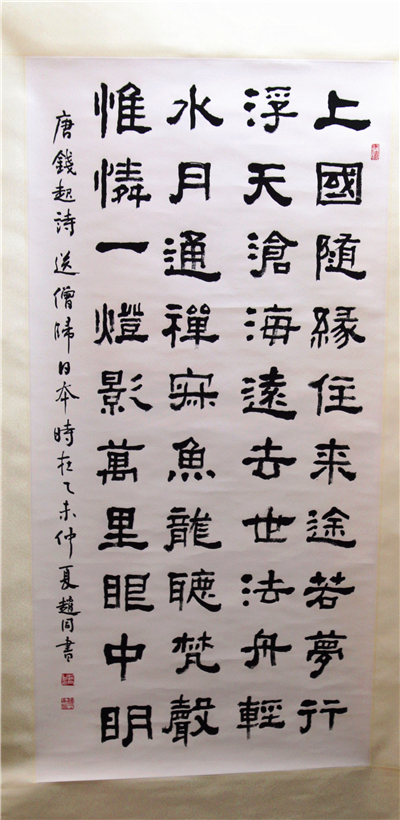 上國隨緣住来途若夢行
浮天滄海遠去世法舟輕
水月通禪寂魚龍聽梵聲
惟憐一燈影萬里眼中明
唐錢起詩送僧歸日本時在乙未仲夏趙同書